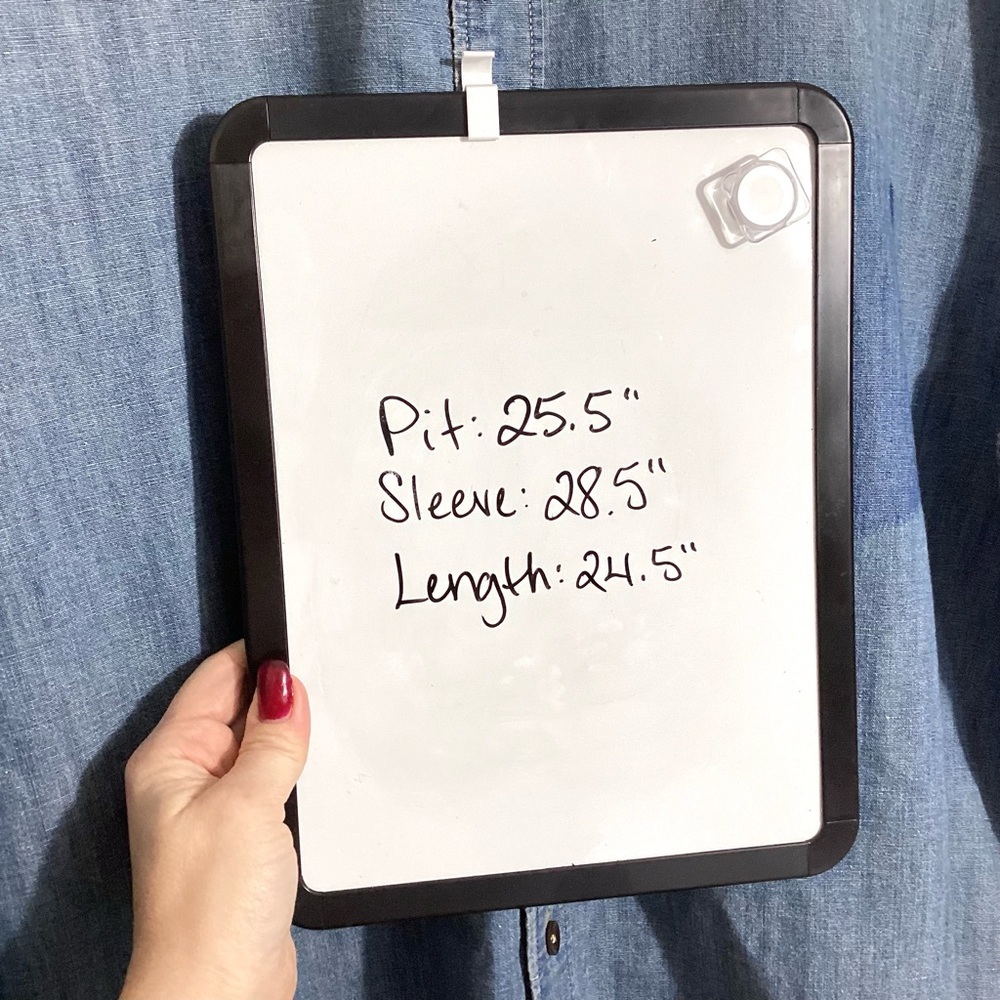 Pit: 25.5"
Sleeve: 28.5"
Length: 24.5"